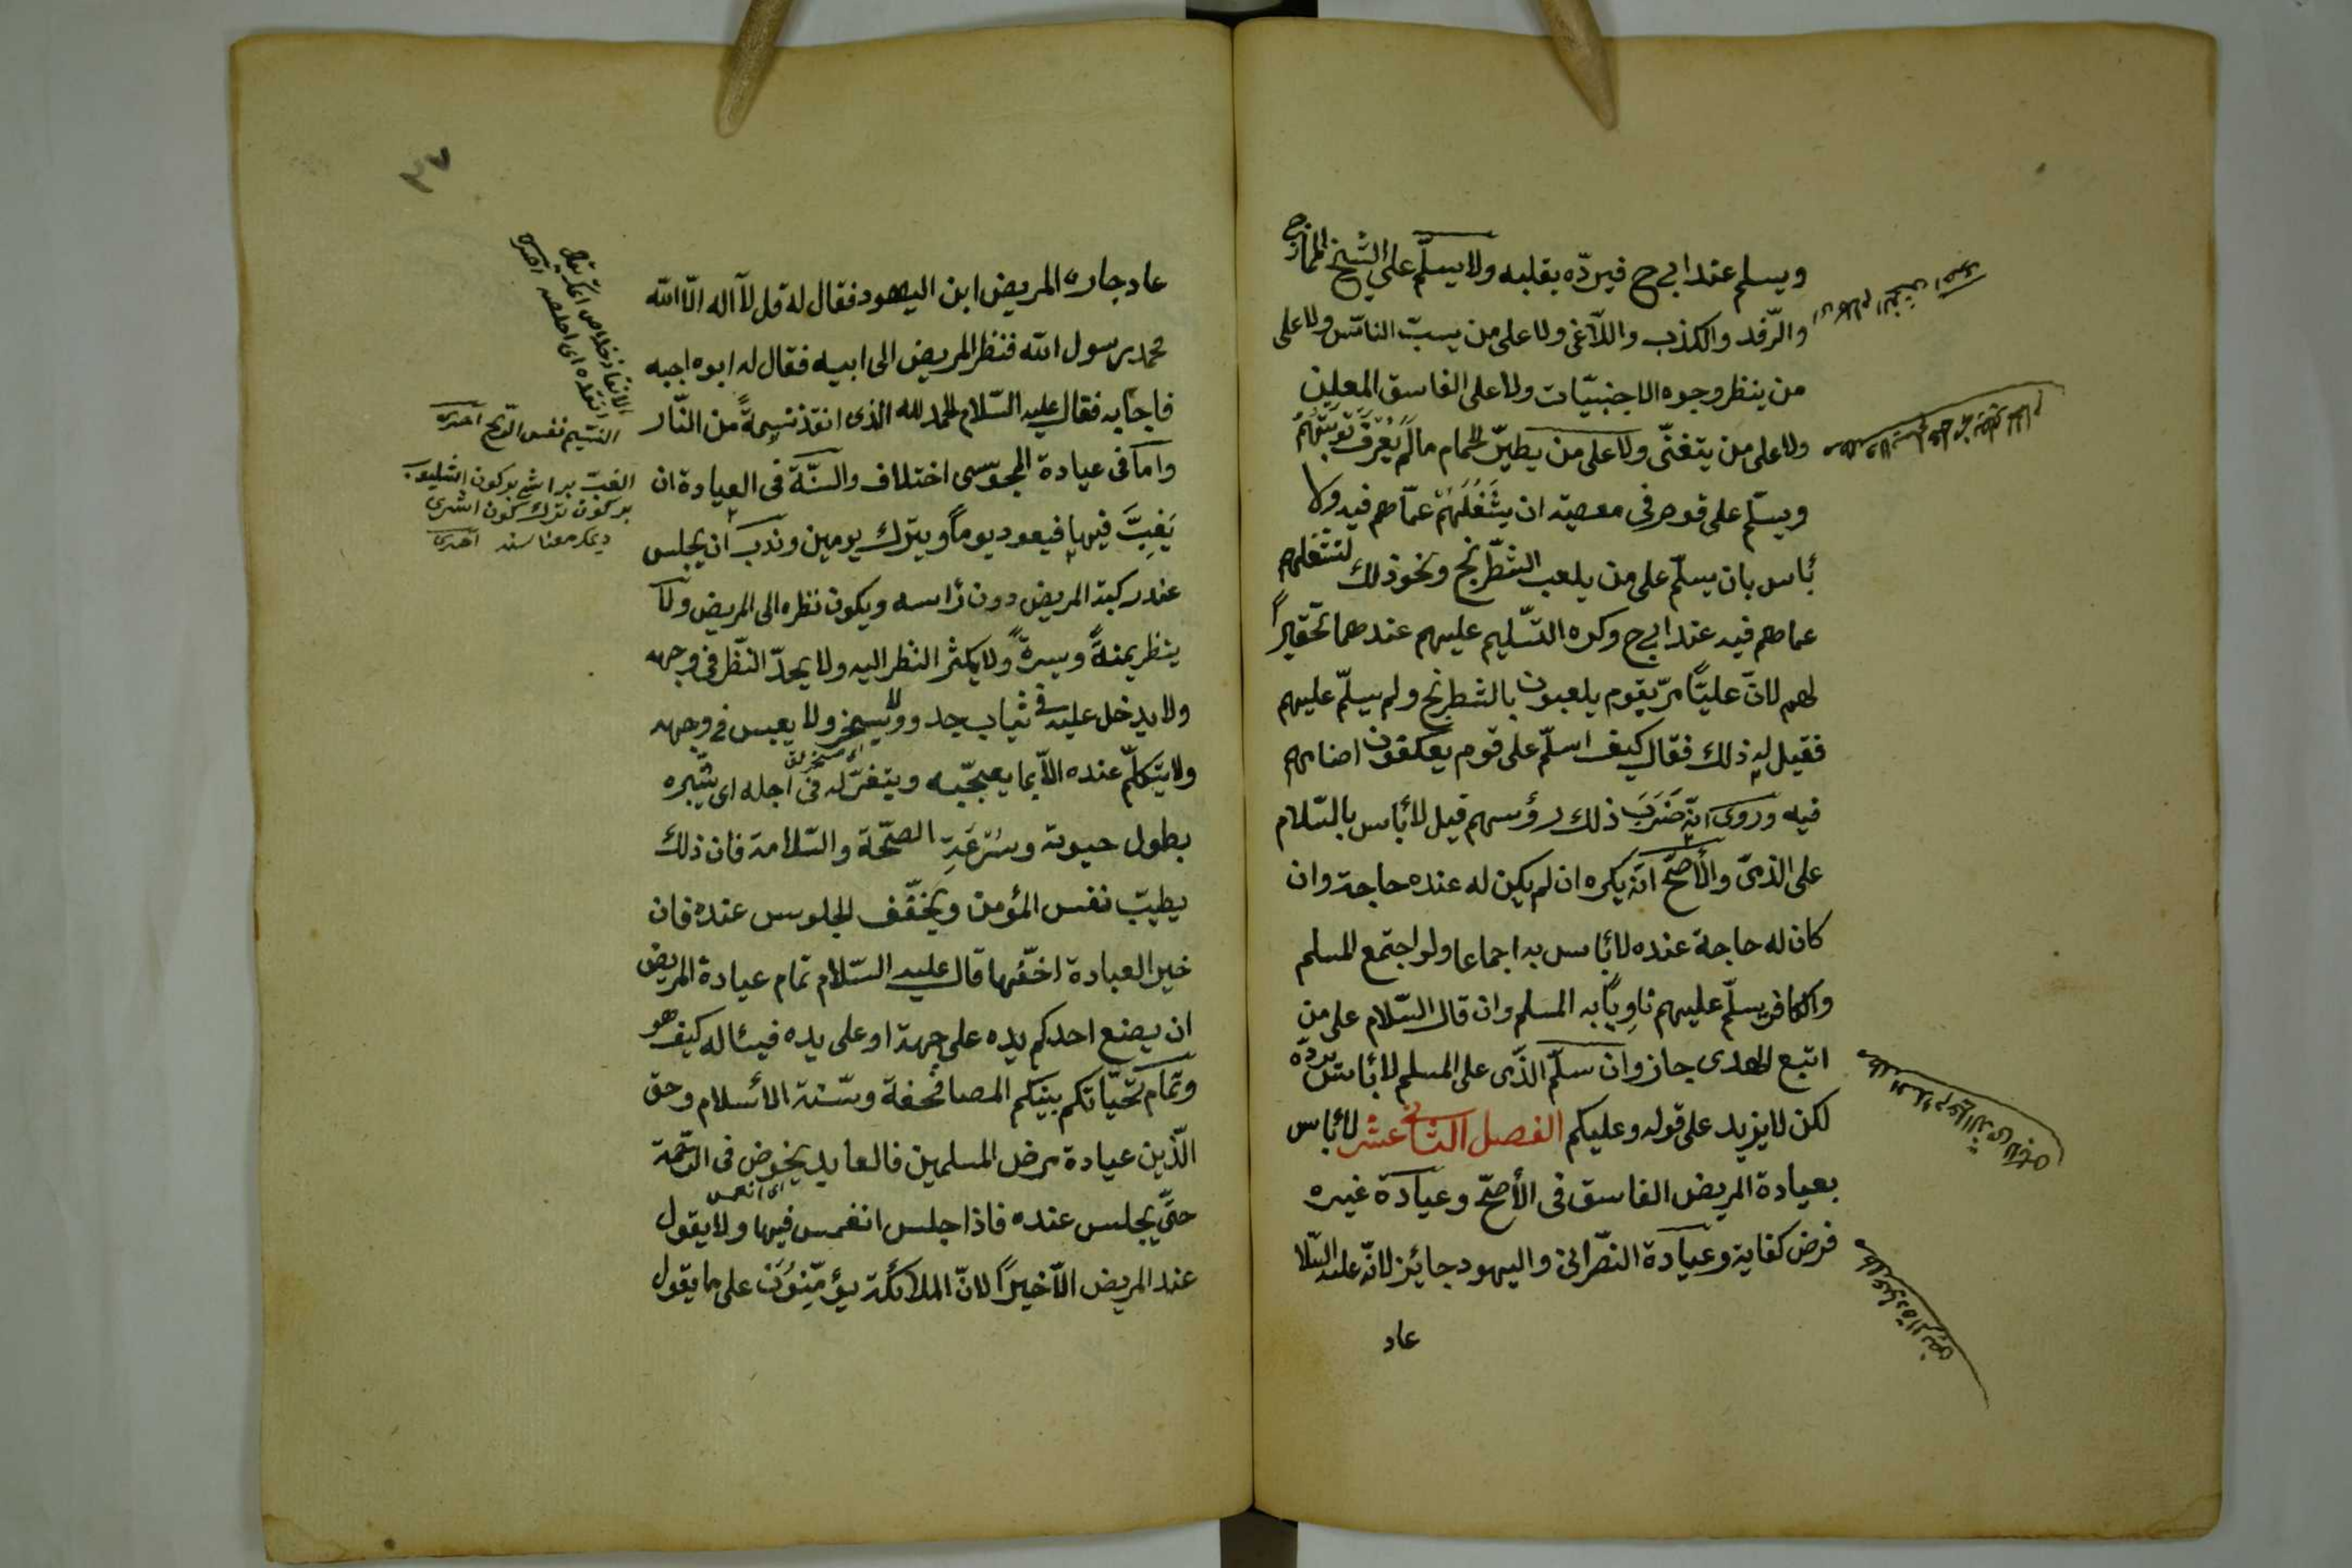 ويسلم عند ابى ح فيردّه بقلبه ولا يسلّم على الشيخ الممازح
والرّفد والكذب واللّاغى ولا على من يسبّ الناس ولا على
من ينظر وجوه الاجنبيّات ولا على الفاسق المعلن
ولا على من يتغنّى ولا على من يطيّر الحمام مالم يُعْرَفْ تَوْبَتُهُمْ
ويسلّم على قوم فى معصية ان يَشْغُلَهُمْ عمّا هم فيه ولا
بأس بان يسلّم على من يلعب الشّطرنج ونحو ذلك لتشغلهم
عما هم فيه عند ابى ح وكره التّسليم عليهم عندهما تحقيراً
لهم لانّ عليّاً مرّ بقوم يلعبون بالشطرنج ولم يسلّم عليهم
فقيل له ذلك فقال كيف اسلّم على قوم يعكفون اصنامهم
فيه وروى انّه ضَرَبَ ذلك رؤسهم قيل لا بأس بالسّلام
على الذمّى والأصحّ انّه يكره ان لم يكن له عنده حاجة وان
كان له حاجة عنده لا بأس به اجماعا ولو اجتمع المسلم
والكافر يسلّم عليهم ناوِياً به المسلم وان قال السّلام على من
اتبع الهدى جاز وان سلّم الذّمى على المسلم لا بأس بردّه
لكن لا يزيد على قوله وعليكم الفصل الثانى عشر لا بأس
بعيادة المريض الفاسق فى الأصحّ وعيادة غيره
فرض كفاية وعيادة النّصرانى واليهود جايز لانّه عليه السّلا
عاد
عيادة المريض
٣٧
عاد جاره المريض ابن اليهود فقال له قل لآ اله الّا اللّه
محمد رسول اللّه فنظر المريض الى ابيه فقال له ابوه اجبه
فاجابه فقال عليه السّلام الحمد لله الذى انقذ نسِمةً من النّار
واما فى عيادة المجوسى اختلاف والسنّة فى العيادة ان
يَغِبَّ فيها فيعود يوماً ويترك يومين وندب ان يجلس
عند ركبة المريض دون رأسه ويكون نظره الى المريض ولا
ينظر يمنةً ويسرةً ولا يكثر النظر اليه ولا يحدّ النظر فى وجهه
ولا يدخل عليه فى ثياب جدد ولا يسخر ولا يعبس فى وجهه
ولا يتكلّم عنده الّا بما يعجبه ويتغرّ له فى اجله اى يبشره
بطول حيوته وسُرْعَةِ الصحّة والسّلامة فان ذلك
يطيب نفس المؤمن ويخفّف الجلوس عنده فان
خير العيادة اخفّها قال عليه السّلام تمام عيادة المريض
ان يضع احدكم يده على جبهته او على يده فيسأله كيف هو
وتمام تحيّاتكم بينكم المصافحة وسنّة الأسلام وحق
الدّين عيادة مرضى المسلمين فالعايد يخوض فى الرّحمة
حتّى يجلس عنده فاذا جلس انغمس فيها ولا يقول
عند المريض الّا خيراً لانّ الملائكة يؤمّنون على ما يقول
النسيم نفس الرّيح اخترى